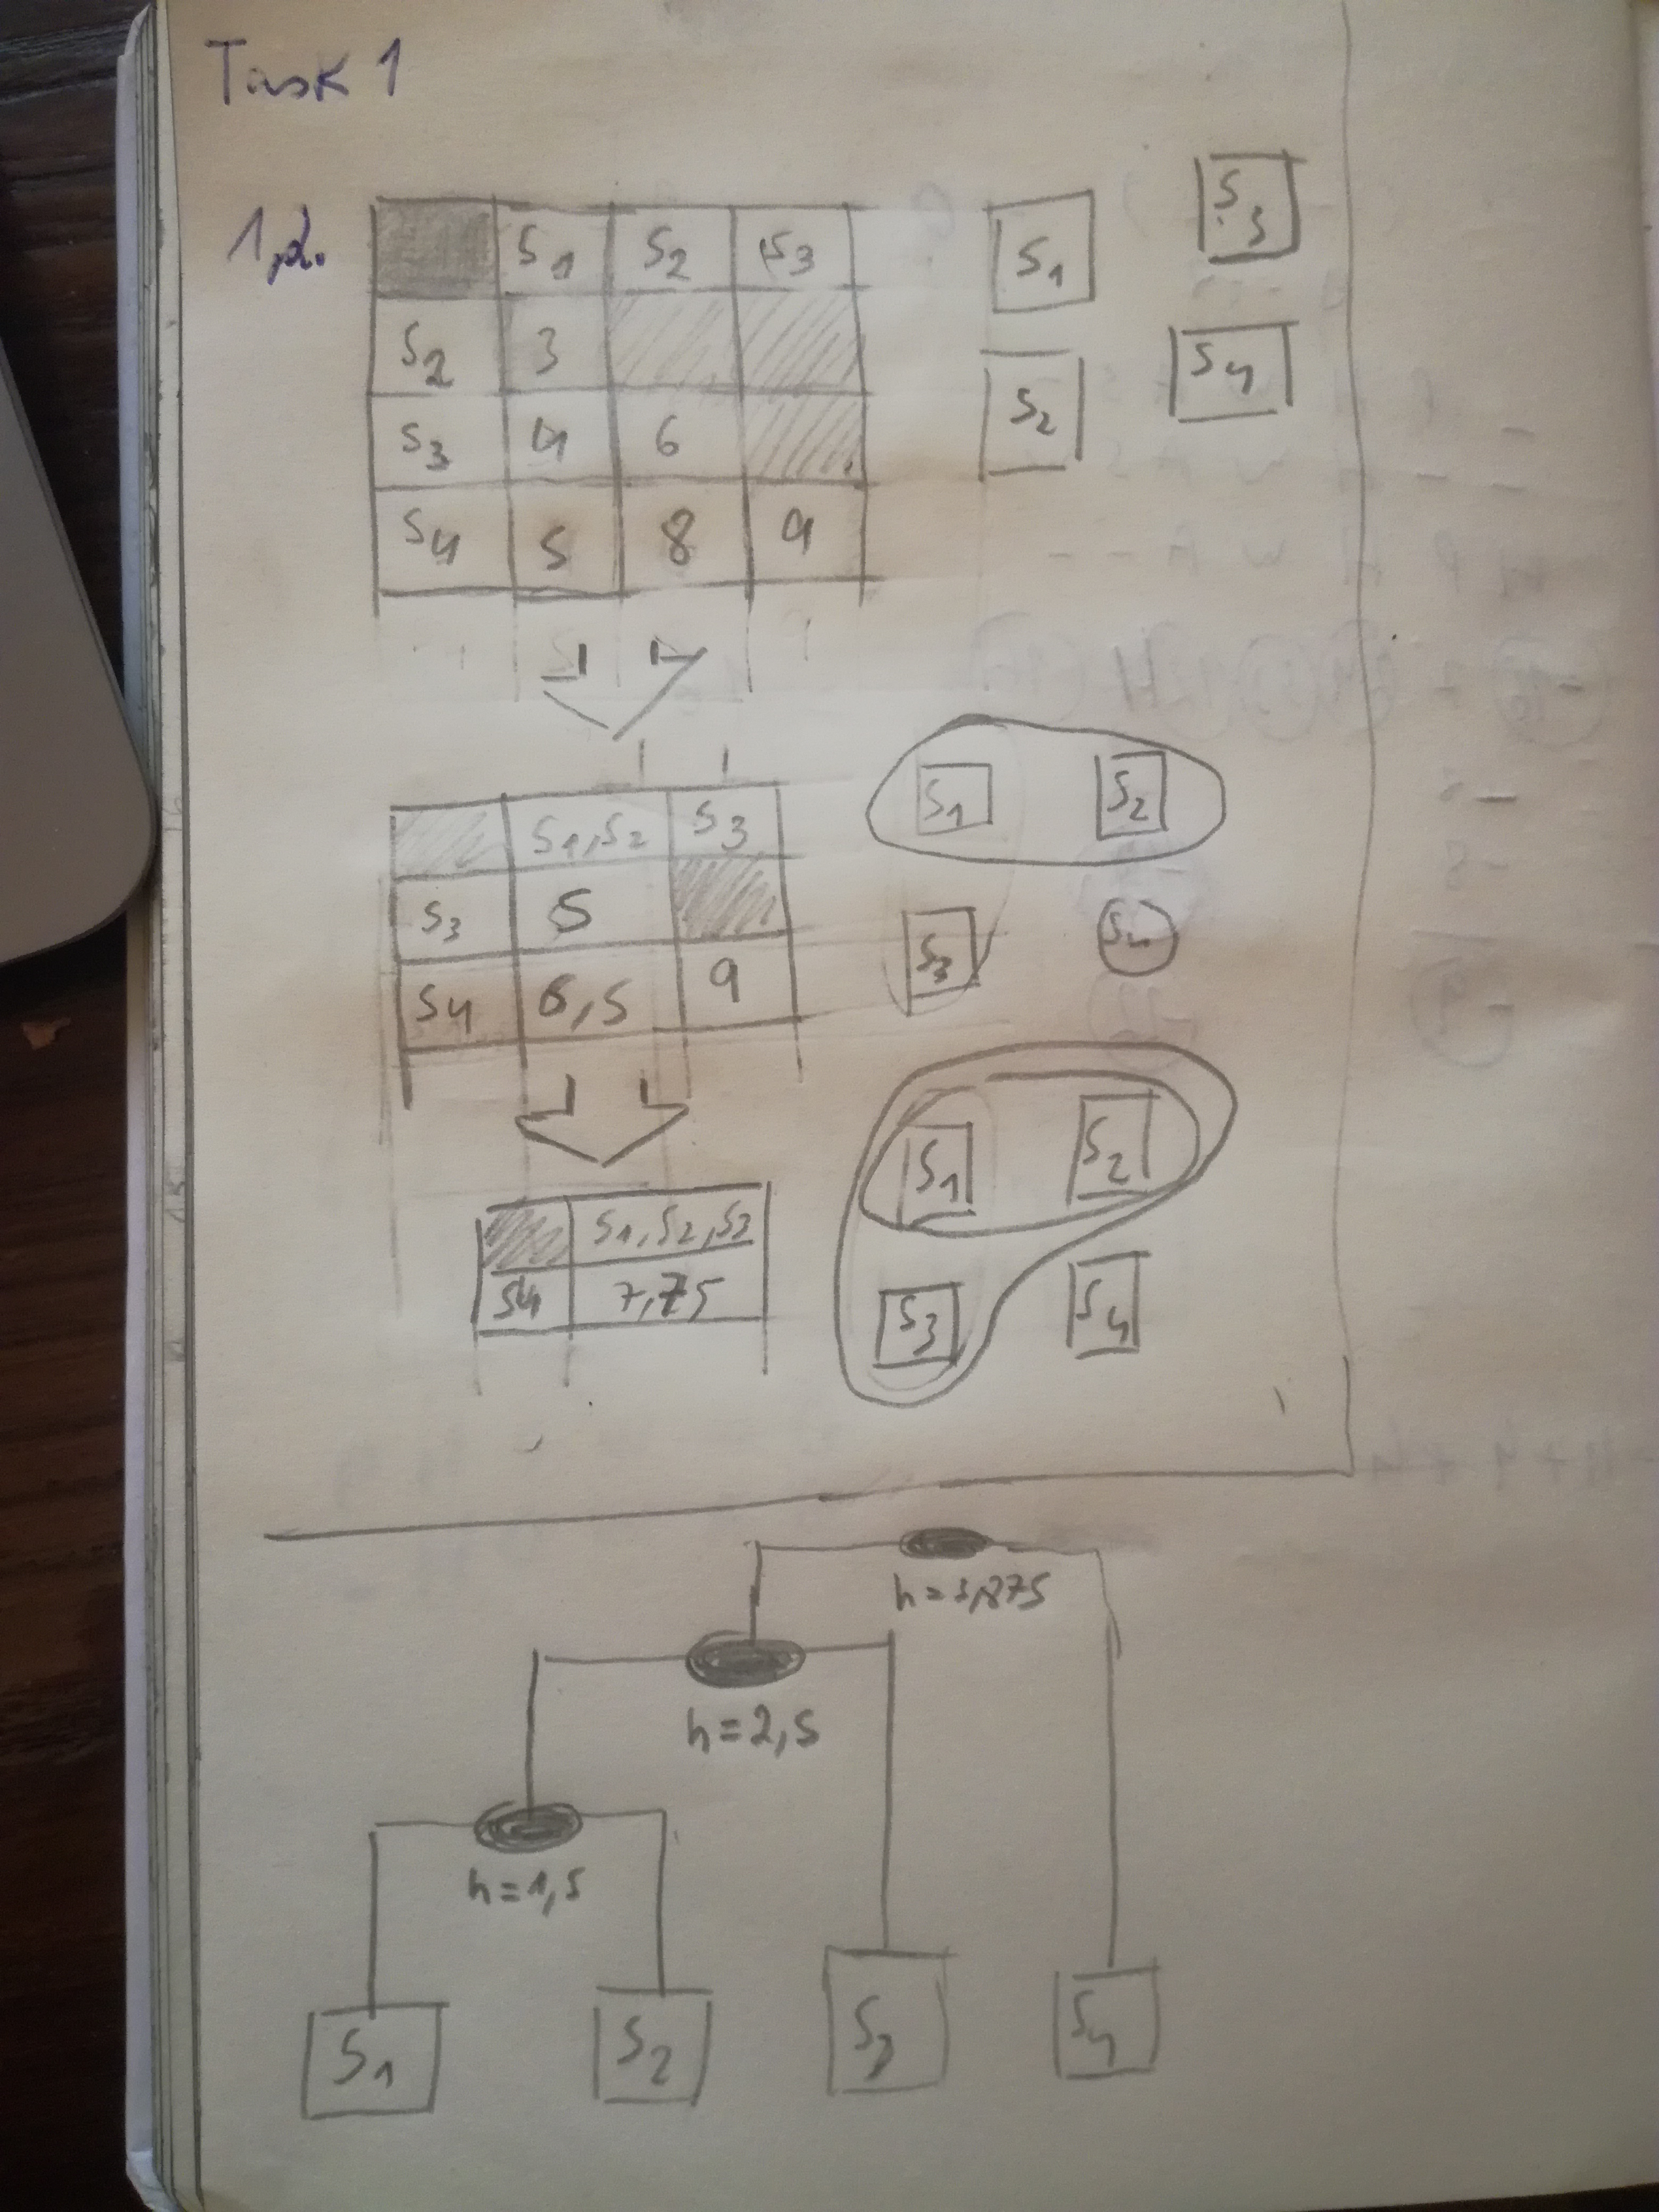 Task 1
1,2.
S1 S2 S3
S2 3
S3 4 6
S4 5 8 9
S1
S3
S2
S4
S1,S2 S3
S3 5
S4 6,5 9
S1 S2
S3 S4
S1,S2,S3
S4 7,75
S1 S2
S3 S4
h=3,875
h=2,5
h=1,5
S1 S2 S3 S4